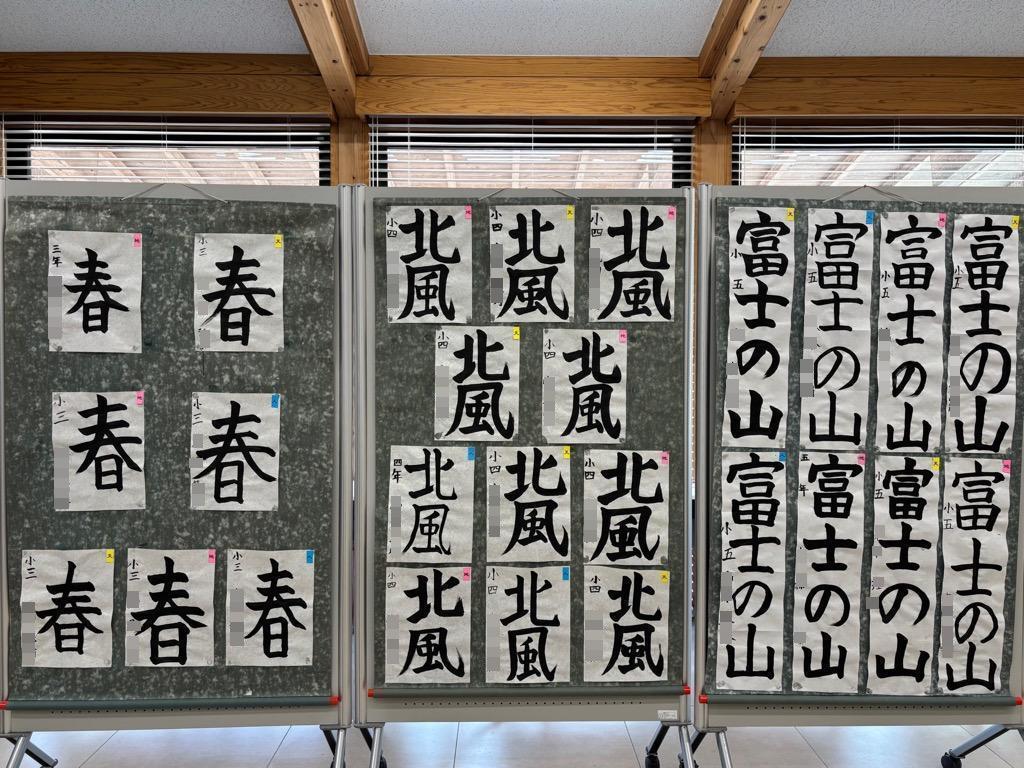 春
三年
春
小三
春
小三
春
小三
春
小三
春
小三
春
小三
北風
小四
北風
小四
北風
小四
北風
小四
北風
小四
北風
四年
北風
小四
北風
小四
北風
小四
北風
小四
北風
小四
富士の山
小五
富士の山
小五
富士の山
小五
富士の山
小五
富士の山
小五
富士の山
五年
富士の山
小五
富士の山
小五